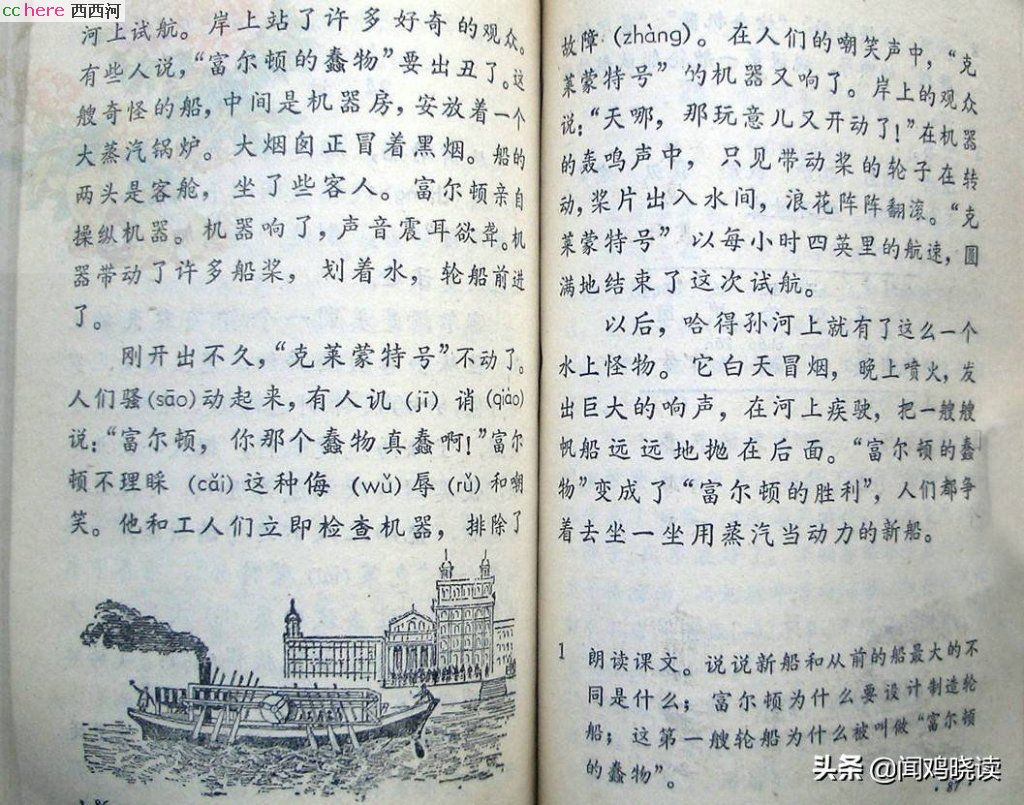 cchere 西西河
河上试航。岸上站了许多好奇的观众。
有些人说，“富尔顿的蠢物”要出丑了。这
艘奇怪的船，中间是机器房，安放着一个
大蒸汽锅炉。大烟囱正冒着黑烟。船的
两头是客舱，坐了些客人。富尔顿亲自
操纵机器。机器响了，声音震耳欲聋。机
器带动了许多船桨，划着水，轮船前进
了。
刚开出不久，“克莱蒙特号”不动了。
人们骚(sāo)动起来，有人讥(jī)诮(qiào)
说：“富尔顿，你那个蠢物真蠢啊！”富尔
顿不理睬(cǎi)这种侮(wǔ)辱(rǔ)和嘲
笑。他和工人们立即检查机器，排除了
故障(zhàng)。在人们的嘲笑声中，“克
莱蒙特号”的机器又响了。岸上的观众
说：“天哪，那玩意儿又开动了！”在机器
的轰鸣声中，只见带动桨的轮子在转
动，桨片出入水间，浪花阵阵翻滚。“克
莱蒙特号”以每小时四英里的航速，圆
满地结束了这次试航。
以后，哈得孙河上就有了这么一个
水上怪物。它白天冒烟，晚上喷火，发
出巨大的响声，在河上疾驶，把一艘艘
帆船远远地抛在后面。“富尔顿的蠢
物”变成了“富尔顿的胜利”，人们都争
着去坐一坐用蒸汽当动力的新船。
1 朗读课文。说说新船和从前的船最大的不
同是什么；富尔顿为什么要设计制造轮
船；这第一艘轮船为什么被叫做“富尔顿
的蠢物”。
头条 @闻鸡晓读